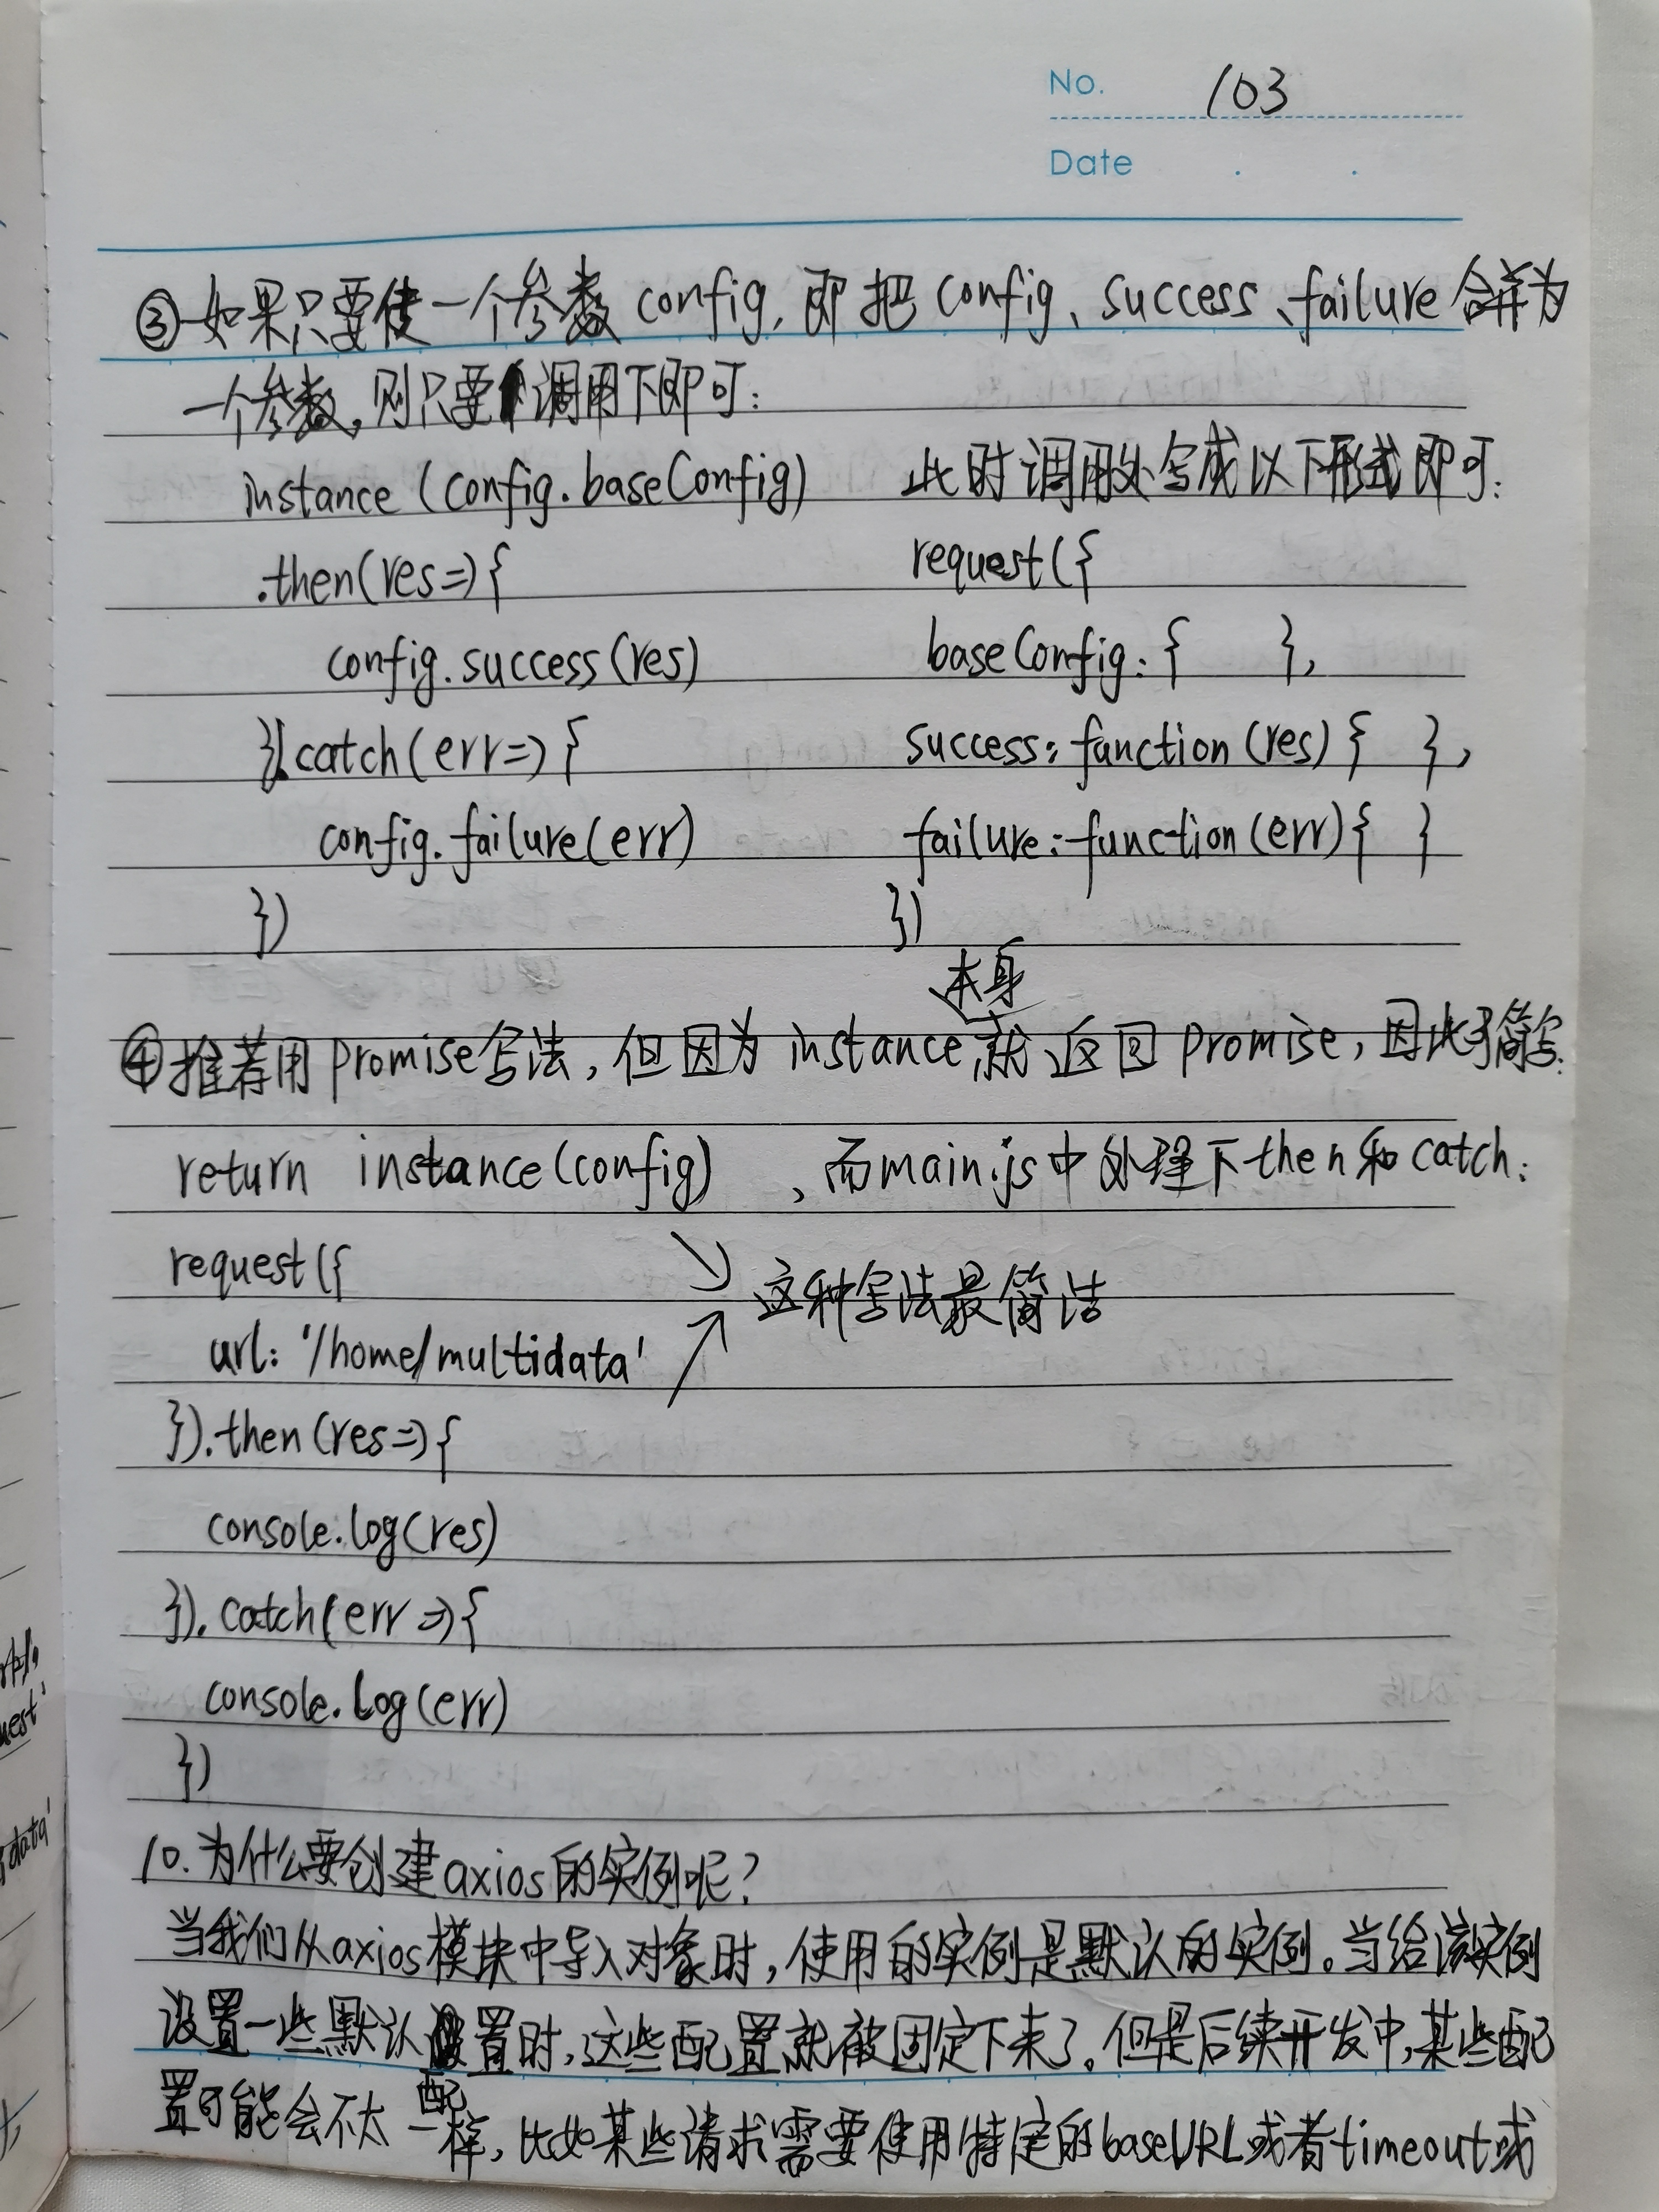 No. 103
Date . .
③如果只要使一个参数config,即把config、success、failure合并为
一个参数,则只要调用下即可:
instance(config.baseConfig)
.then(res=>{
config.success(res)
}).catch(err=>{
config.failure(err)
})
此时调用处写成以下形式即可:
request({
baseConfig:{ },
success:function(res){ },
failure:function(err){ }
})
④推荐用promise写法,但因为instance本身就返回promise,因此可简写:
return instance(config) ,而main.js中处理下then和catch:
request({
url:'/home/multidata'
}).then(res=>{
console.log(res)
}).catch(err=>{
console.log(err)
})
这种写法最简洁
10.为什么要创建axios的实例呢?
当我们从axios模块中导入对象时,使用的实例是默认的实例。当给该实例
设置一些默认配置时,这些配置就被固定下来了。但是后续开发中,某些配
置可能会不太一样,比如某些请求需要使用特定的baseURL或者timeout或
uest'
data'